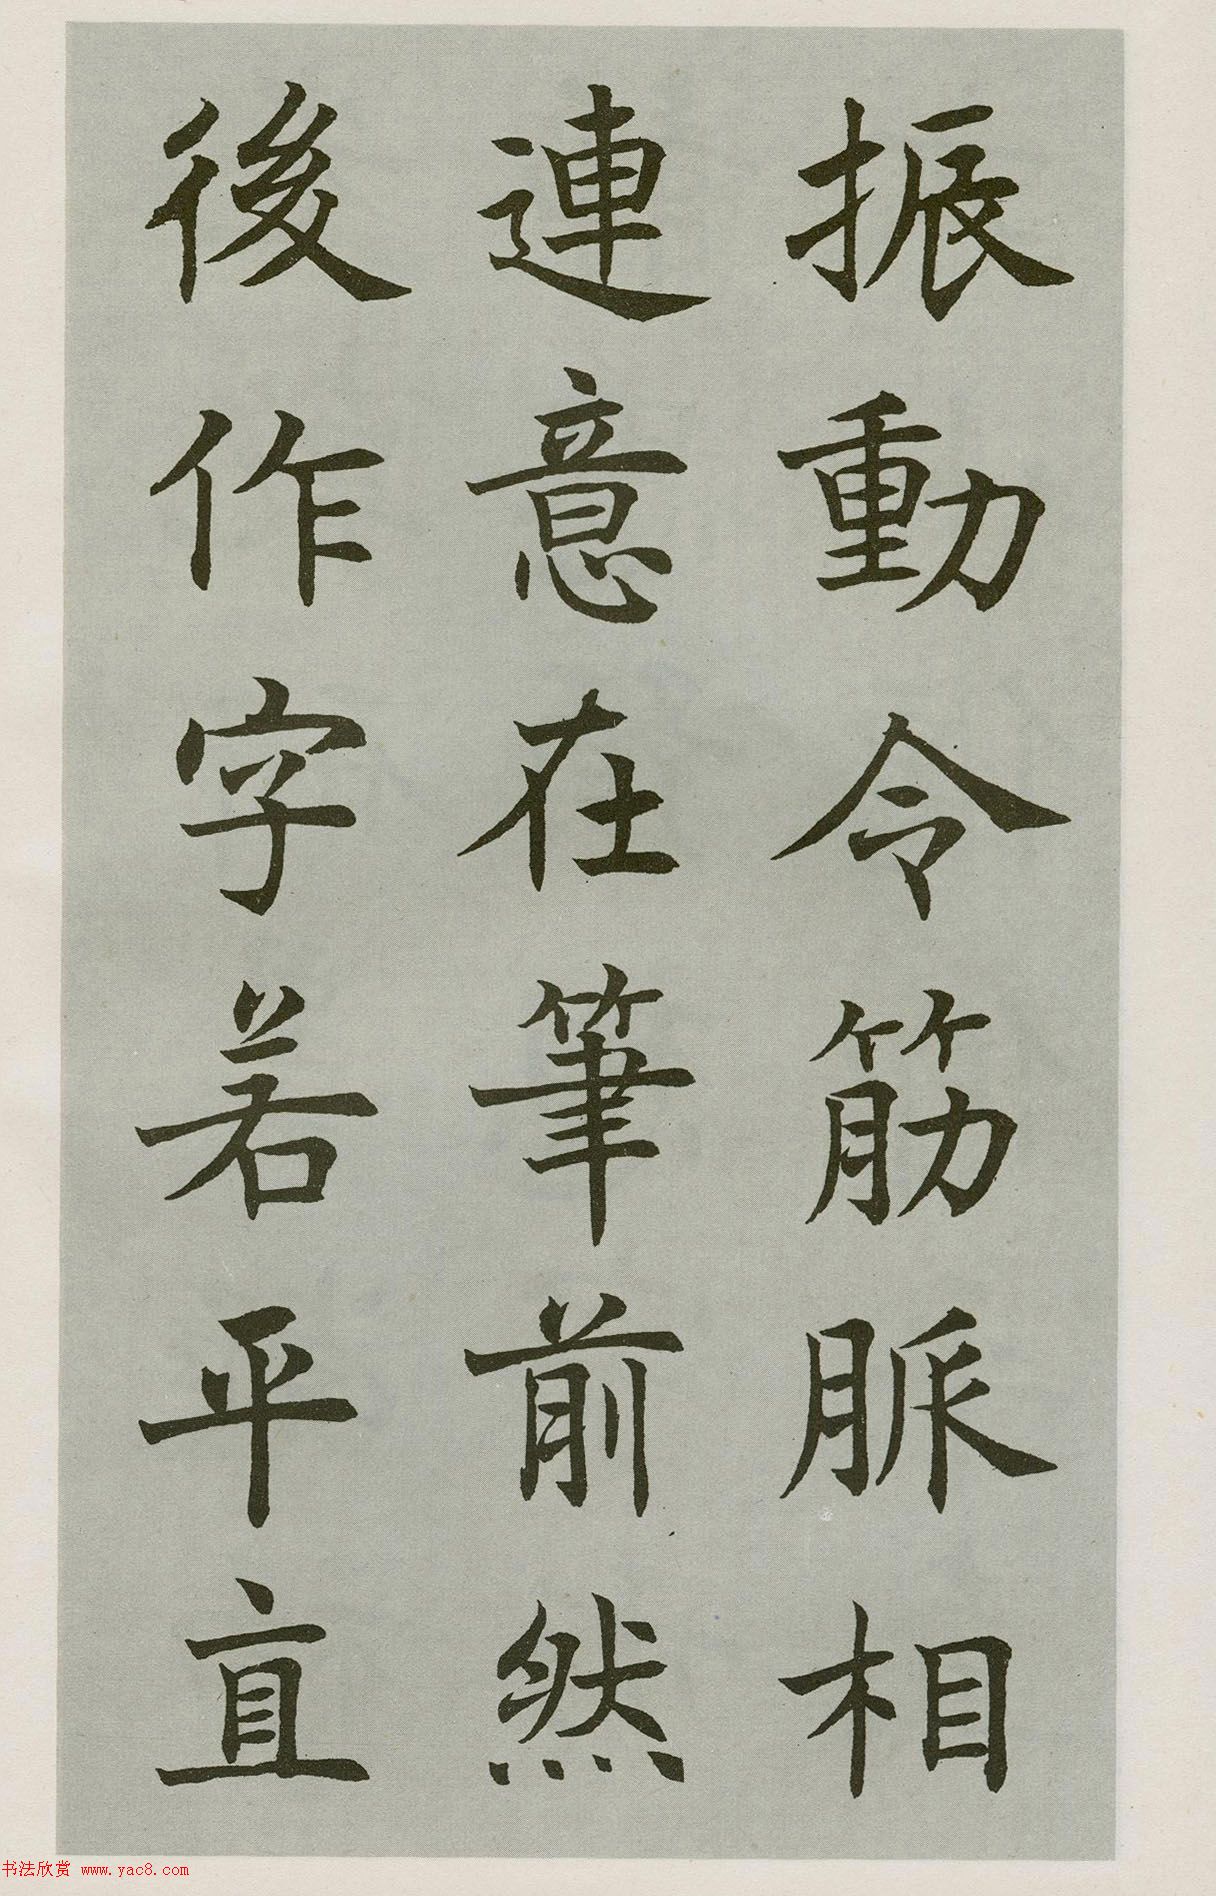 振動令筋脈相
連意在筆前然
後作字若平直
书法欣赏 www.yac8.com